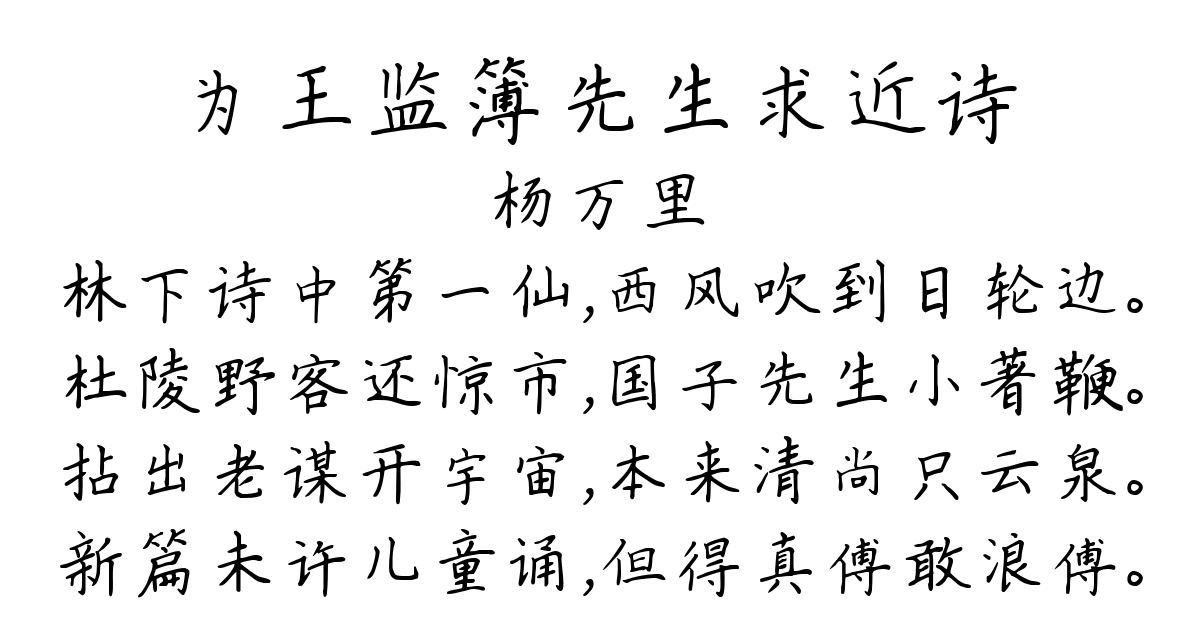 为王监簿先生求近诗
杨万里
林下诗中第一仙,西风吹到日轮边。
杜陵野客还惊市,国子先生小著鞭。
拈出老谋开宇宙,本来清尚只云泉。
新篇未许儿童诵,但得真傅敢浪傅。